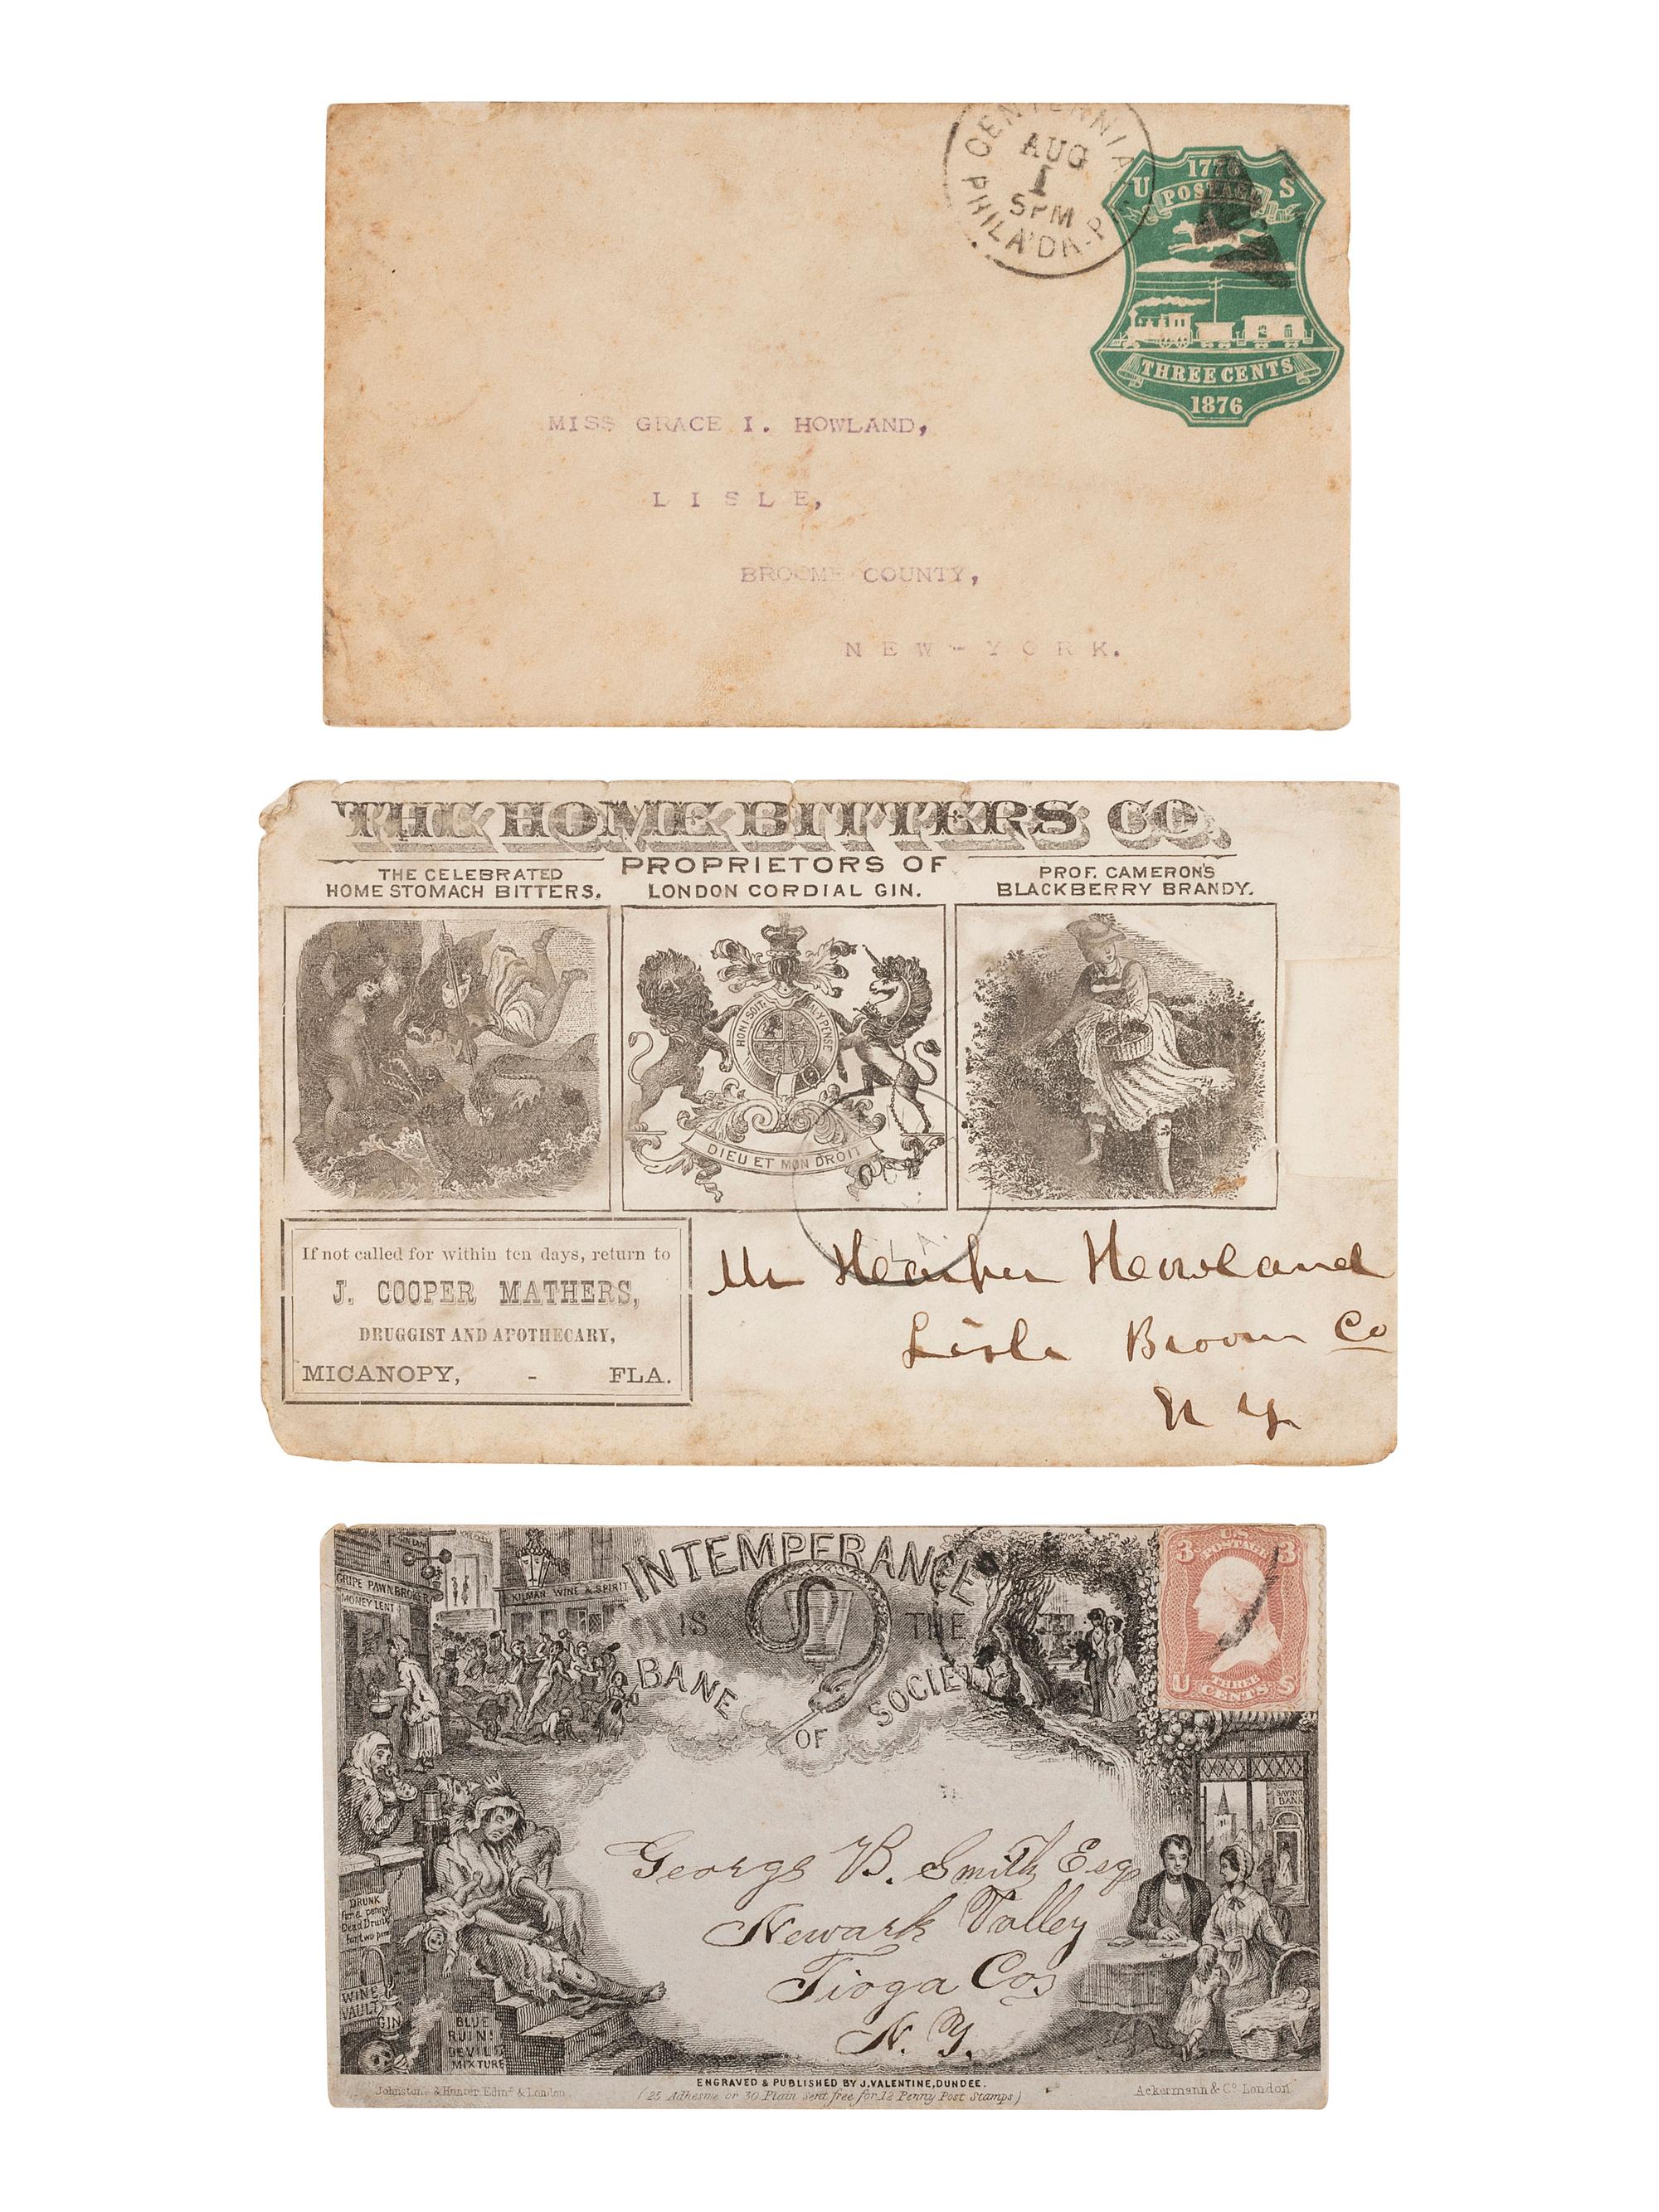 CENTENNIAL
AUG
1
5PM
PHILA'DA-P
1776
U POSTAGE S
THREE CENTS
1876
MISS GRACE I. HOWLAND,
LISLE,
BROOME COUNTY,
NEW-YORK.
THE HOME BITTERS CO.
PROPRIETORS OF
THE CELEBRATED
HOME STOMACH BITTERS.
LONDON CORDIAL GIN.
PROF. CAMERON'S
BLACKBERRY BRANDY.
HONI SOIT MAL Y PENSE
DIEU ET MON DROIT
OCT
LA.
If not called for within ten days, return to
J. COOPER MATHERS,
DRUGGIST AND APOTHECARY,
MICANOPY, - FLA.
Mr Howland
Lisle Broom Co
N Y
GRIPE PAWNBROKER
MONEY LENT
KILMAN WINE & SPIRIT
INTEMPERANCE
IS THE
BANE OF SOCIETY
3 U.S. 3
POSTAGE
U THREE S
CENTS
SAVING
BANK
George B. Smith Esq
Newark Valley
Tioga Co
N. Y.
DRUNK
for a penny
Dead Drunk
for two pen
WINE
VAULT
GIN
BLUE
RUIN!
DEVILS
MIXTURE
ENGRAVED & PUBLISHED BY J. VALENTINE, DUNDEE.
Johnstone & Hunter Edinr & London.
(25 Adhesive or 30 Plain Sent free for 12 Penny Post Stamps)
Ackermann & Co London